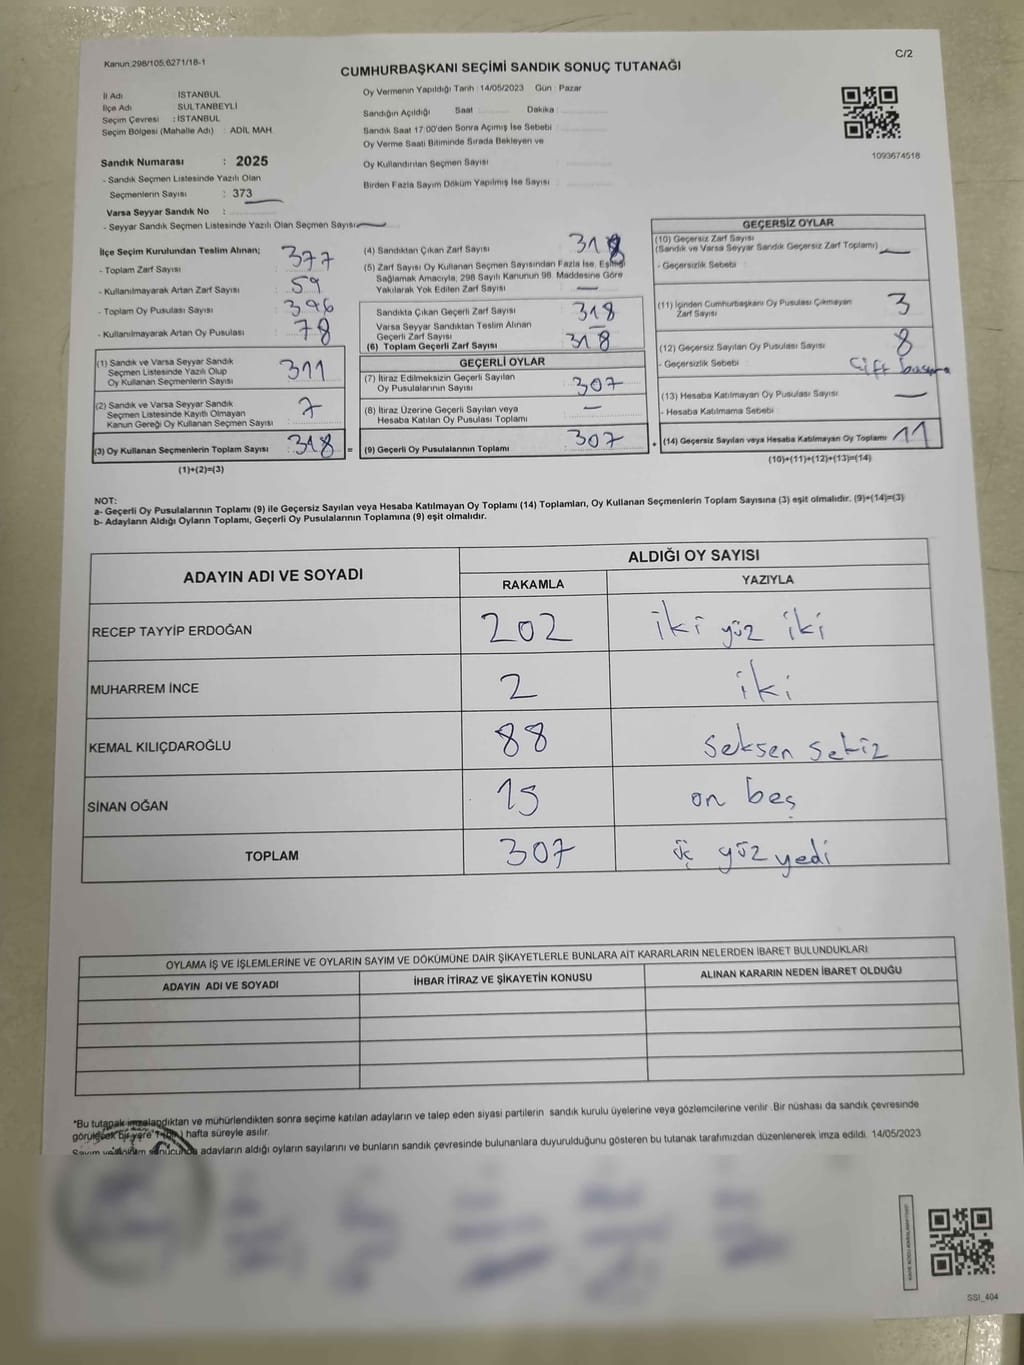 Kanun:298/105;6271/18-1
C/2
CUMHURBAŞKANI SEÇİMİ SANDIK SONUÇ TUTANAĞI
İl Adı : İSTANBUL
İlçe Adı : SULTANBEYLİ
Seçim Çevresi : İSTANBUL
Seçim Bölgesi (Mahalle Adı) : ADİL MAH.
Sandık Numarası : 2025
- Sandık Seçmen Listesinde Yazılı Olan
Seçmenlerin Sayısı : 373
Varsa Seyyar Sandık No :
- Seyyar Sandık Seçmen Listesinde Yazılı Olan Seçmen Sayısı: —
Oy Vermenin Yapıldığı Tarih : 14/05/2023 Gün : Pazar
Sandığın Açıldığı Saat Dakika :
Sandık Saat 17:00'den Sonra Açımış İse Sebebi :
Oy Verme Saati Bitiminde Sırada Bekleyen ve
Oy Kullandırılan Seçmen Sayısı :
Birden Fazla Sayım Döküm Yapılmış İse Sayısı :
1093674518
İlçe Seçim Kurulundan Teslim Alınan;
- Toplam Zarf Sayısı : 377
- Kullanılmayarak Artan Zarf Sayısı : 59
- Toplam Oy Pusulası Sayısı : 396
- Kullanılmayarak Artan Oy Pusulası : 78
(1) Sandık ve Varsa Seyyar Sandık
Seçmen Listesinde Yazılı Olup
Oy Kullanan Seçmenlerin Sayısı : 311
(2) Sandık ve Varsa Seyyar Sandık
Seçmen Listesinde Kayıtlı Olmayan
Kanun Gereği Oy Kullanan Seçmen Sayısı : 7
(3) Oy Kullanan Seçmenlerin Toplam Sayısı : 318
(1)+(2)=(3)
(4) Sandıktan Çıkan Zarf Sayısı : 318
(5) Zarf Sayısı Oy Kullanan Seçmen Sayısından Fazla İse, Eşitliği
Sağlamak Amacıyla, 298 Sayılı Kanunun 98. Maddesine Göre
Yakılarak Yok Edilen Zarf Sayısı : —
Sandıkta Çıkan Geçerli Zarf Sayısı : 318
Varsa Seyyar Sandıktan Teslim Alınan
Geçerli Zarf Sayısı : —
(6) Toplam Geçerli Zarf Sayısı : 318
GEÇERLİ OYLAR
(7) İtiraz Edilmeksizin Geçerli Sayılan
Oy Pusulalarının Sayısı : 307
(8) İtiraz Üzerine Geçerli Sayılan veya
Hesaba Katılan Oy Pusulası Toplamı : —
= (9) Geçerli Oy Pusulalarının Toplamı : 307
GEÇERSİZ OYLAR
(10) Geçersiz Zarf Sayısı
(Sandık ve Varsa Seyyar Sandık Geçersiz Zarf Toplamı) : —
- Geçersizlik Sebebi :
(11) İçinden Cumhurbaşkanı Oy Pusulası Çıkmayan
Zarf Sayısı : 3
(12) Geçersiz Sayılan Oy Pusulası Sayısı : 8
- Geçersizlik Sebebi : Çift basma
(13) Hesaba Katılmayan Oy Pusulası Sayısı : —
- Hesaba Katılmama Sebebi :
+ (14) Geçersiz Sayılan veya Hesaba Katılmayan Oy Toplamı : 11
(10)+(11)+(12)+(13)=(14)
NOT:
a- Geçerli Oy Pusulalarının Toplamı (9) ile Geçersiz Sayılan veya Hesaba Katılmayan Oy Toplamı (14) Toplamları, Oy Kullanan Seçmenlerin Toplam Sayısına (3) eşit olmalıdır. (9)+(14)=(3)
b- Adayların Aldığı Oyların Toplamı, Geçerli Oy Pusulalarının Toplamına (9) eşit olmalıdır.
ADAYIN ADI VE SOYADI ALDIĞI OY SAYISI
RAKAMLA YAZIYLA
RECEP TAYYİP ERDOĞAN 202 iki yüz iki
MUHARREM İNCE 2 iki
KEMAL KILIÇDAROĞLU 88 Seksen Sekiz
SİNAN OĞAN 15 on beş
TOPLAM 307 üç yüz yedi
OYLAMA İŞ VE İŞLEMLERİNE VE OYLARIN SAYIM VE DÖKÜMÜNE DAİR ŞİKAYETLERLE BUNLARA AİT KARARLARIN NELERDEN İBARET BULUNDUKLARI
ADAYIN ADI VE SOYADI İHBAR İTİRAZ VE ŞİKAYETİN KONUSU ALINAN KARARIN NEDEN İBARET OLDUĞU
*Bu tutanak imzalandıktan ve mühürlendikten sonra seçime katılan adayların ve talep eden siyasi partilerin sandık kurulu üyelerine veya gözlemcilerine verilir .Bir nüshası da sandık çevresinde
görülecek bir yere 1 (bir) hafta süreyle asılır.
Sayım ve döküm sonucunda adayların aldığı oyların sayılarını ve bunların sandık çevresinde bulunanlara duyurulduğunu gösteren bu tutanak tarafımızdan düzenlenerek imza edildi. 14/05/2023
SSI_404